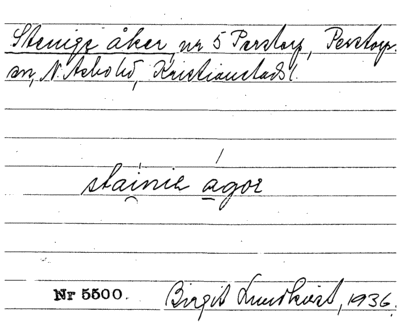 Stenige åker, nr 5 Perstorp, Perstorp
sn, N. Åsbo hd, Kristianstads l.
staìnıe ágor
Nr 5500. Birgit Lundkvist, 1936.